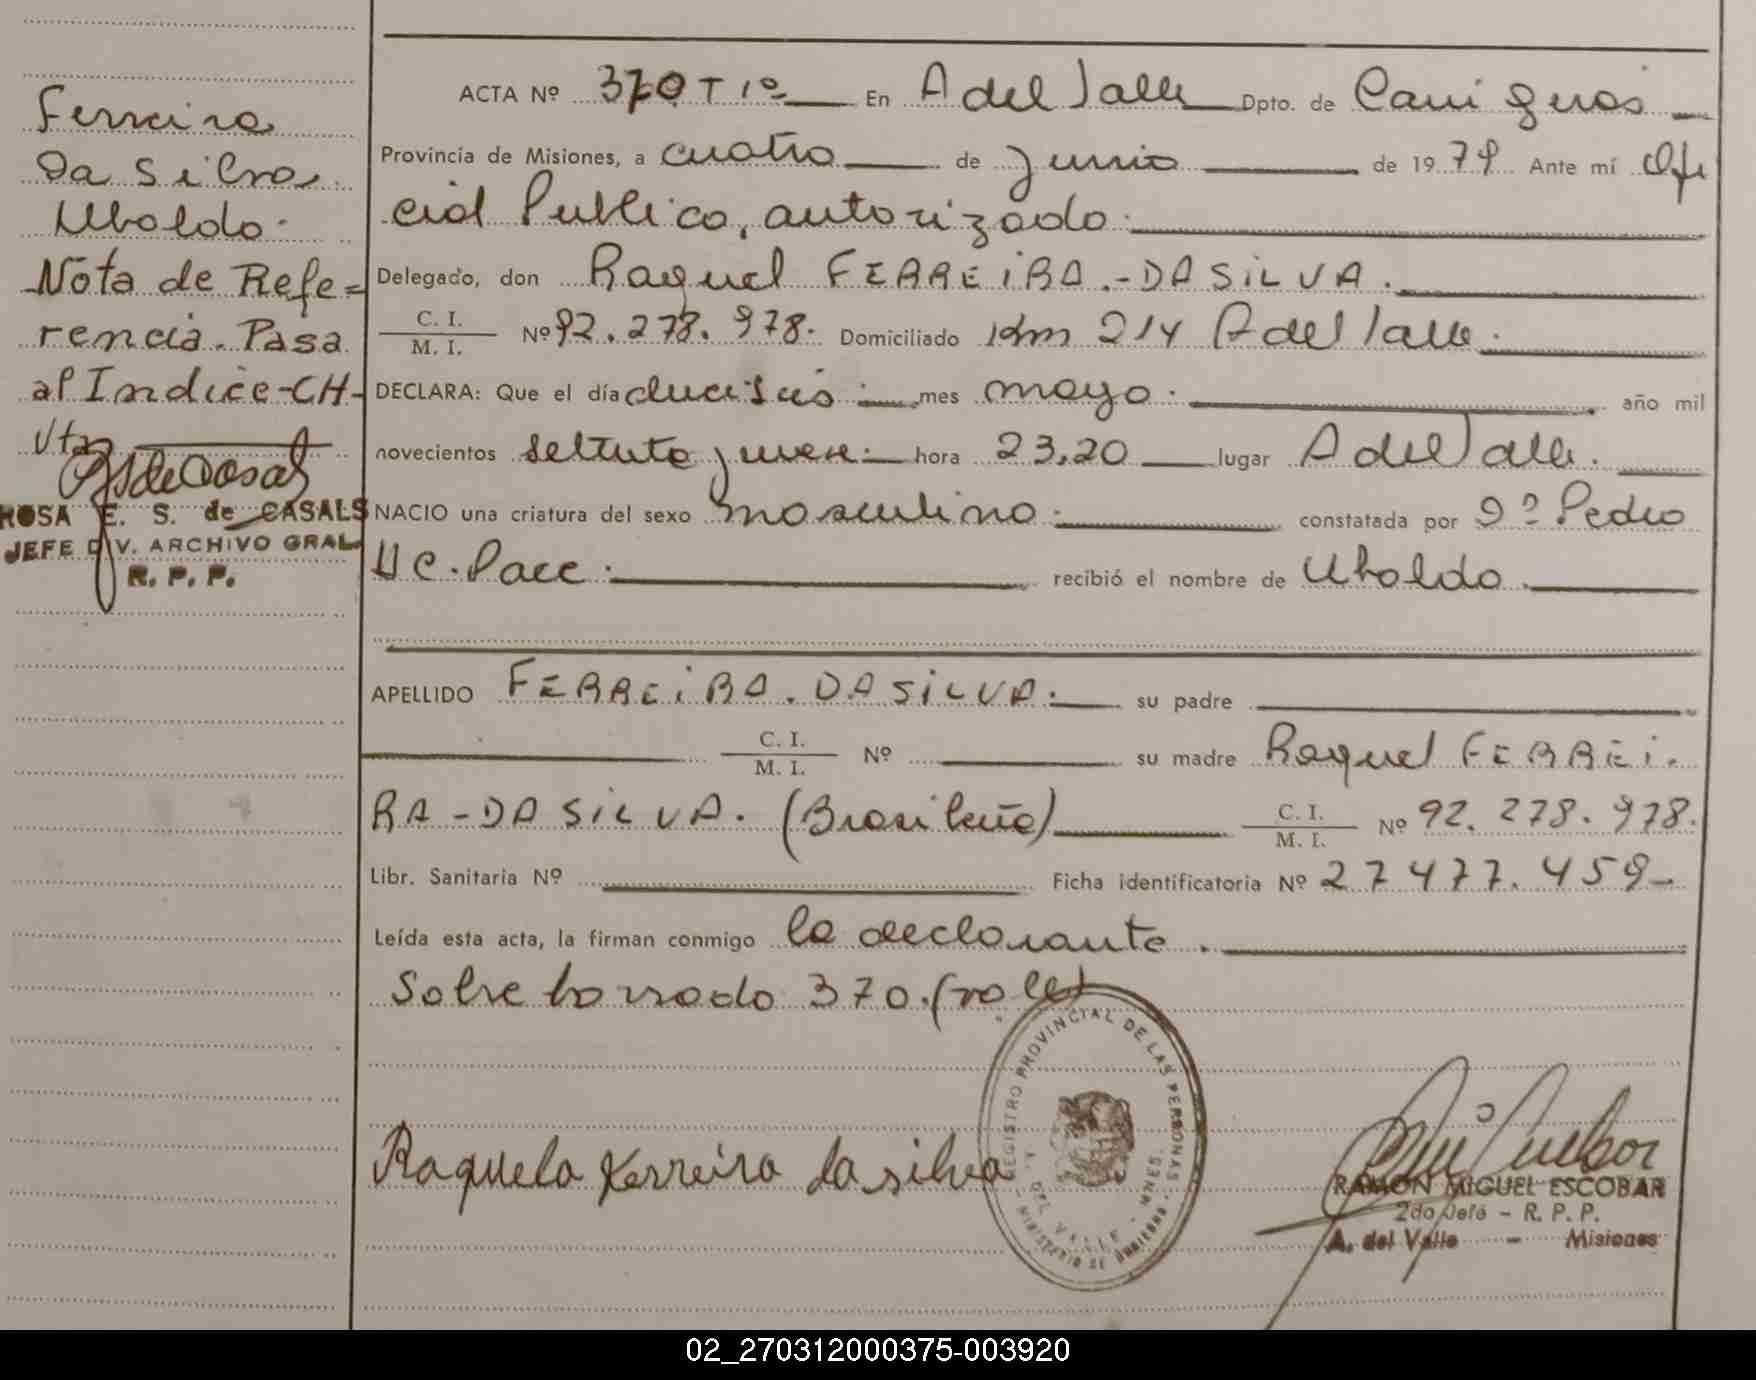 Ferreira
Da Silva
Ubaldo.
Nota de Refe=
rencia. Pasa
al Indice-CH-
Vta
ROSA E. S. de CASALS
JEFE DIV. ARCHIVO GRAL.
R. P. P.
ACTA Nº 370 T 1º En A del Valle Dpto. de Cainguas
Provincia de Misiones, a cuatro de junio de 1979 Ante mí Ofi
cial Publico, autorizado.
Delegado, don Raquel FERREIRA.-DA SILVA.
C. I.
M. I. Nº 92.278.978. Domiciliado Km 214 A del Valle.
DECLARA: Que el día dieciseis mes mayo. año mil
novecientos setenta y nueve. hora 23,20 lugar A del Valle.
NACIO una criatura del sexo masculino. constatada por Pedro
recibió el nombre de Ubaldo.
APELLIDO FERREIRA. DA SILVA. su padre
C. I.
M. I. Nº su madre Raquel FERREI.
RA-DA SILVA. (Brasileña) C. I.
M. I. Nº 92.278.978.
Libr. Sanitaria Nº Ficha identificatoria Nº 27477.459-
Leída esta acta, la firman conmigo la declarante.
Sobre borrado 370.(vale)
REGISTRO PROVINCIAL DE LAS PERSONAS
A. DEL VALLE - MNES.
Raquela Ferreira da silva
RAMON MIGUEL ESCOBAR
2do Jefe - R. P. P.
A. del Valle - Misiones
02_270312000375-003920